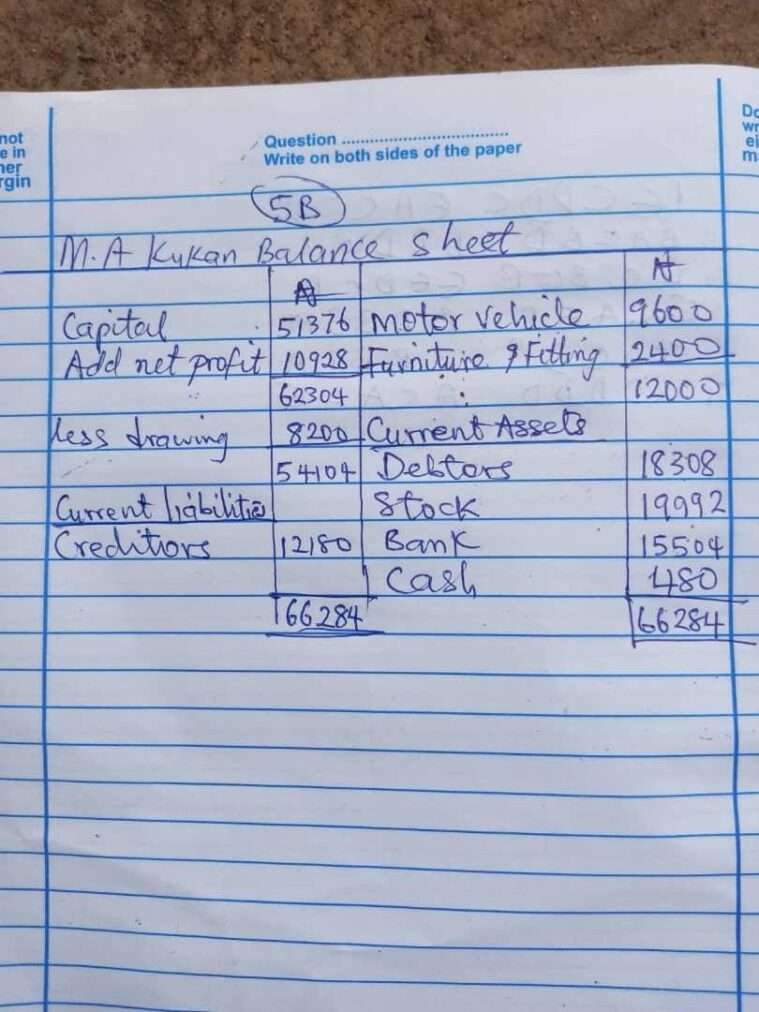 not
e in
ner
rgin
Question ....................................
Write on both sides of the paper
Do
wr
ei
m
5B
M.A Kukan Balance sheet
₦ ₦
Capital 51376 Motor vehicle 9600
Add net profit 10928 Furniture & Fitting 2400
62304 12000
less drawing 8200 Current Assets
54104 Debtors 18308
Current liabilities Stock 19992
Creditiors 12180 Bank 15504
Cash 480
66284 66284